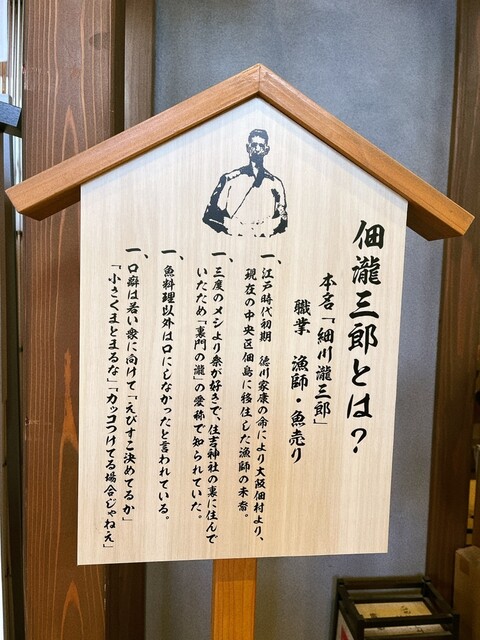 佃瀧三郎とは？
本名「細川瀧三郎」
職業　漁師・魚売り
一、江戸時代初期　徳川家康の命により大阪佃村より、
現在の中央区佃島に移住した漁師の末裔。
一、三度のメシより祭が好きで、住吉神社の裏に住んで
いたため「裏門の瀧」の愛称で知られていた。
一、魚料理以外は口にしなかったと言われている。
一、口癖は若い衆に向けて「えびすこ決めてるか」
「小さくまとまるな」「カッコつけてる場合じゃねぇ」